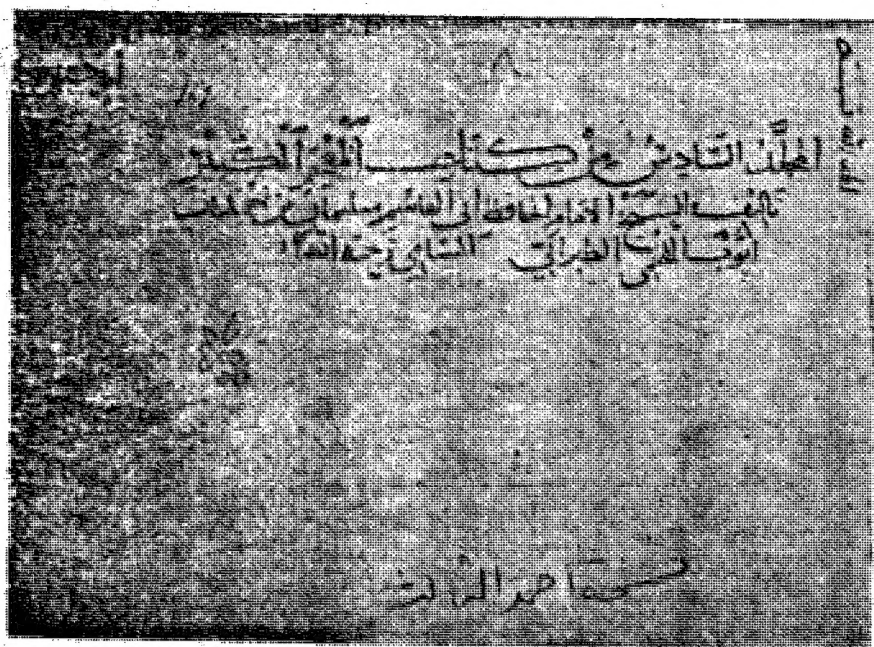 المجلد السادس من كتاب المعجم الكبير
تاليف الشيخ الامام الحافظ ابي القاسم سليمان بن احمد بن
ايوب اللخمي الطبراني الشامي رحمه الله
نسخة احمد الثالث